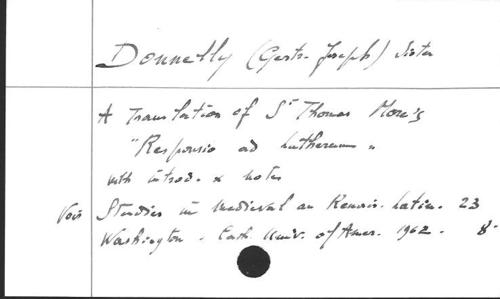 Donnelly (Gertr. Joseph) Sister
A Translation of St Thomas More's
"Responsio ad Lutherum"
with introd. & notes
Vois Studies in Medieval an Renais. Latin. 23
Washington. Cath Univ. of Amer. 1962. 8°